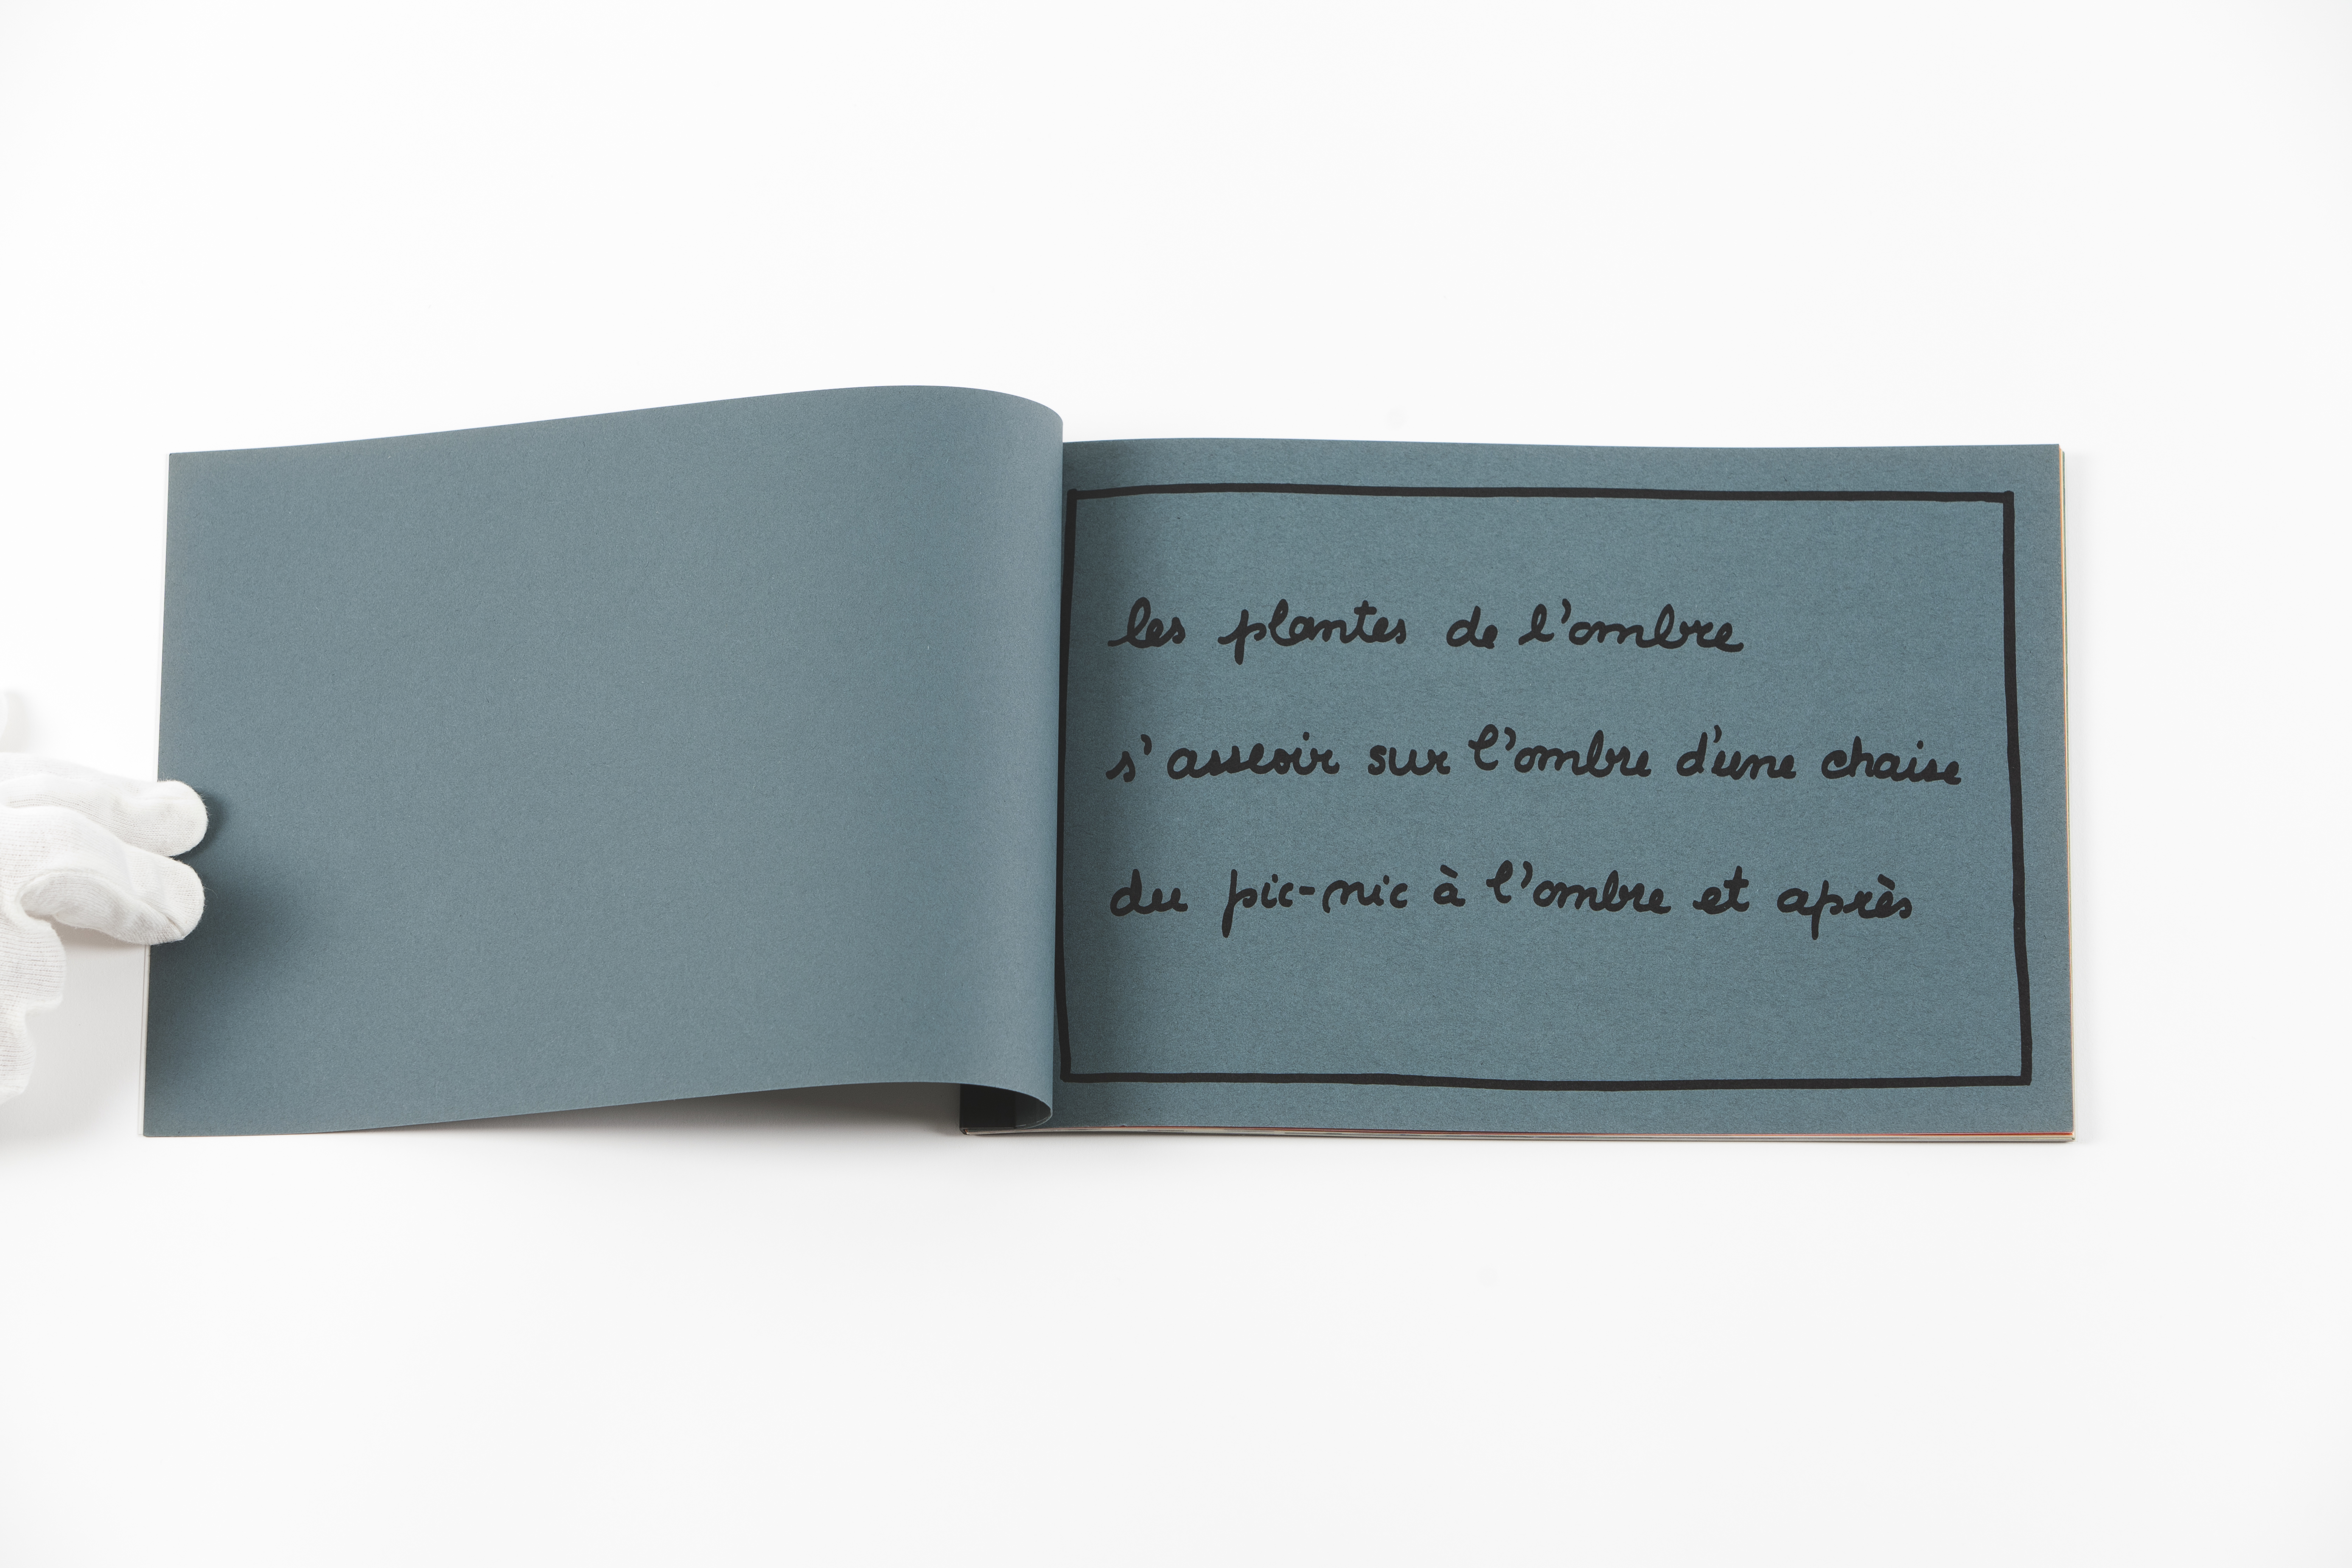 les plantes de l'ombre
s'asseoir sur l'ombre d'une chaise
du pic-nic à l'ombre et après